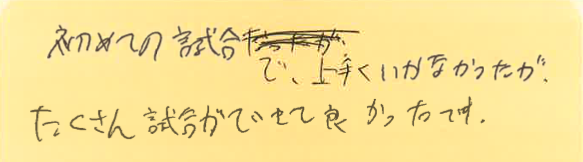 初めての試合で、上手くいかなかったが、
たくさん試合ができて良かったです。